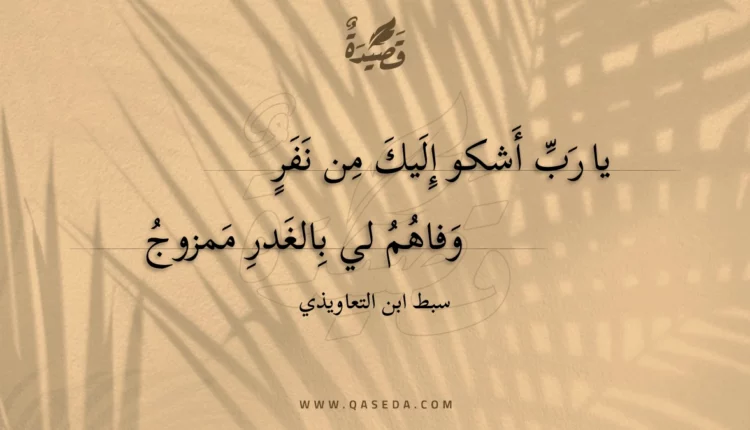 قَصِيْدَةٌ
يا رَبِّ أَشكو إِلَيكَ مِن نَفَرٍ
وَفاهُمُ لي بِالغَدرِ مَمزوجُ
سبط ابن التعاويذي
WWW.QASEDA.COM